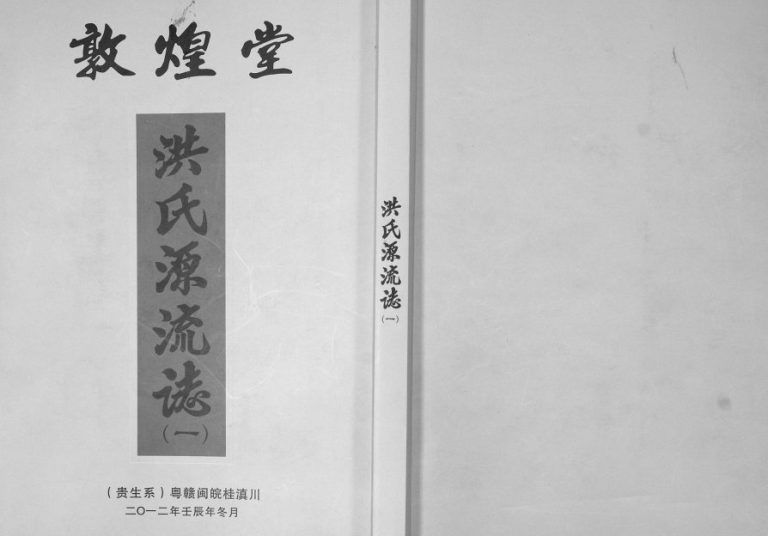 敦煌堂
洪氏源流誌
（一）
（贵生系）粤赣闽皖桂滇川
二〇一二年壬辰年冬月
洪氏源流誌
（一）